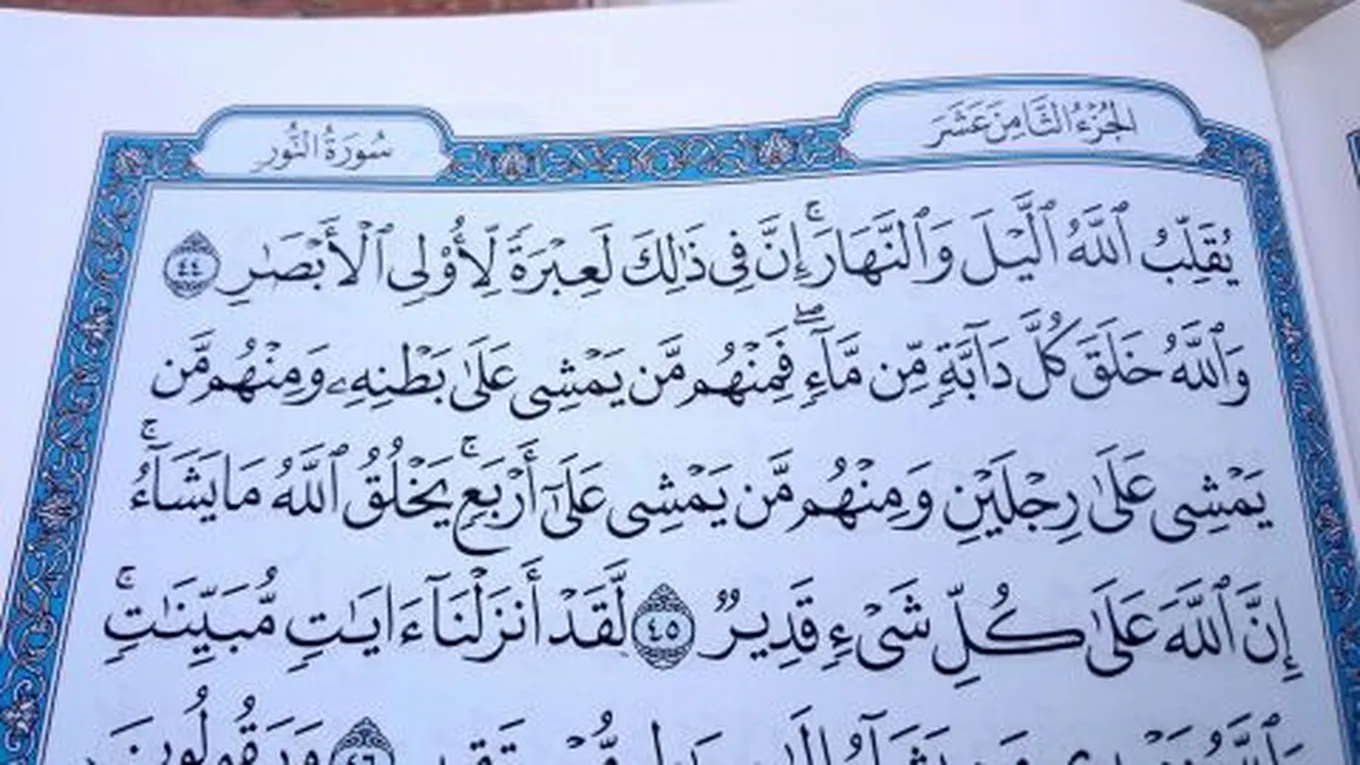 الجزء الثامن عشر
سورة النور
يُقَلِّبُ ٱللَّهُ ٱلَّيْلَ وَٱلنَّهَارَۚ إِنَّ فِى ذَٰلِكَ لَعِبْرَةً لِّأُو۟لِى ٱلْأَبْصَٰرِ ٤٤
وَٱللَّهُ خَلَقَ كُلَّ دَآبَّةٍ مِّن مَّآءٍۖ فَمِنْهُم مَّن يَمْشِى عَلَىٰ بَطْنِهِۦ وَمِنْهُم مَّن
يَمْشِى عَلَىٰ رِجْلَيْنِ وَمِنْهُم مَّن يَمْشِى عَلَىٰٓ أَرْبَعٍۚ يَخْلُقُ ٱللَّهُ مَا يَشَآءُۚ
إِنَّ ٱللَّهَ عَلَىٰ كُلِّ شَىْءٍ قَدِيرٌ ٤٥ لَّقَدْ أَنزَلْنَآ ءَايَٰتٍ مُّبَيِّنَٰتٍۚ
وَٱللَّهُ يَهْدِى مَن يَشَآءُ إِلَىٰ صِرَٰطٍ مُّسْتَقِيمٍ ٤٦ وَيَقُولُونَ